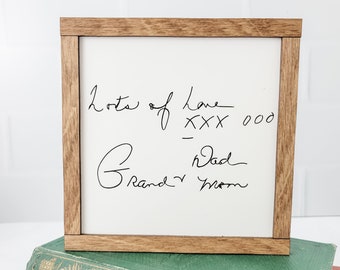 Lots of Love
XXX OOO
Dad
Grand & Mom